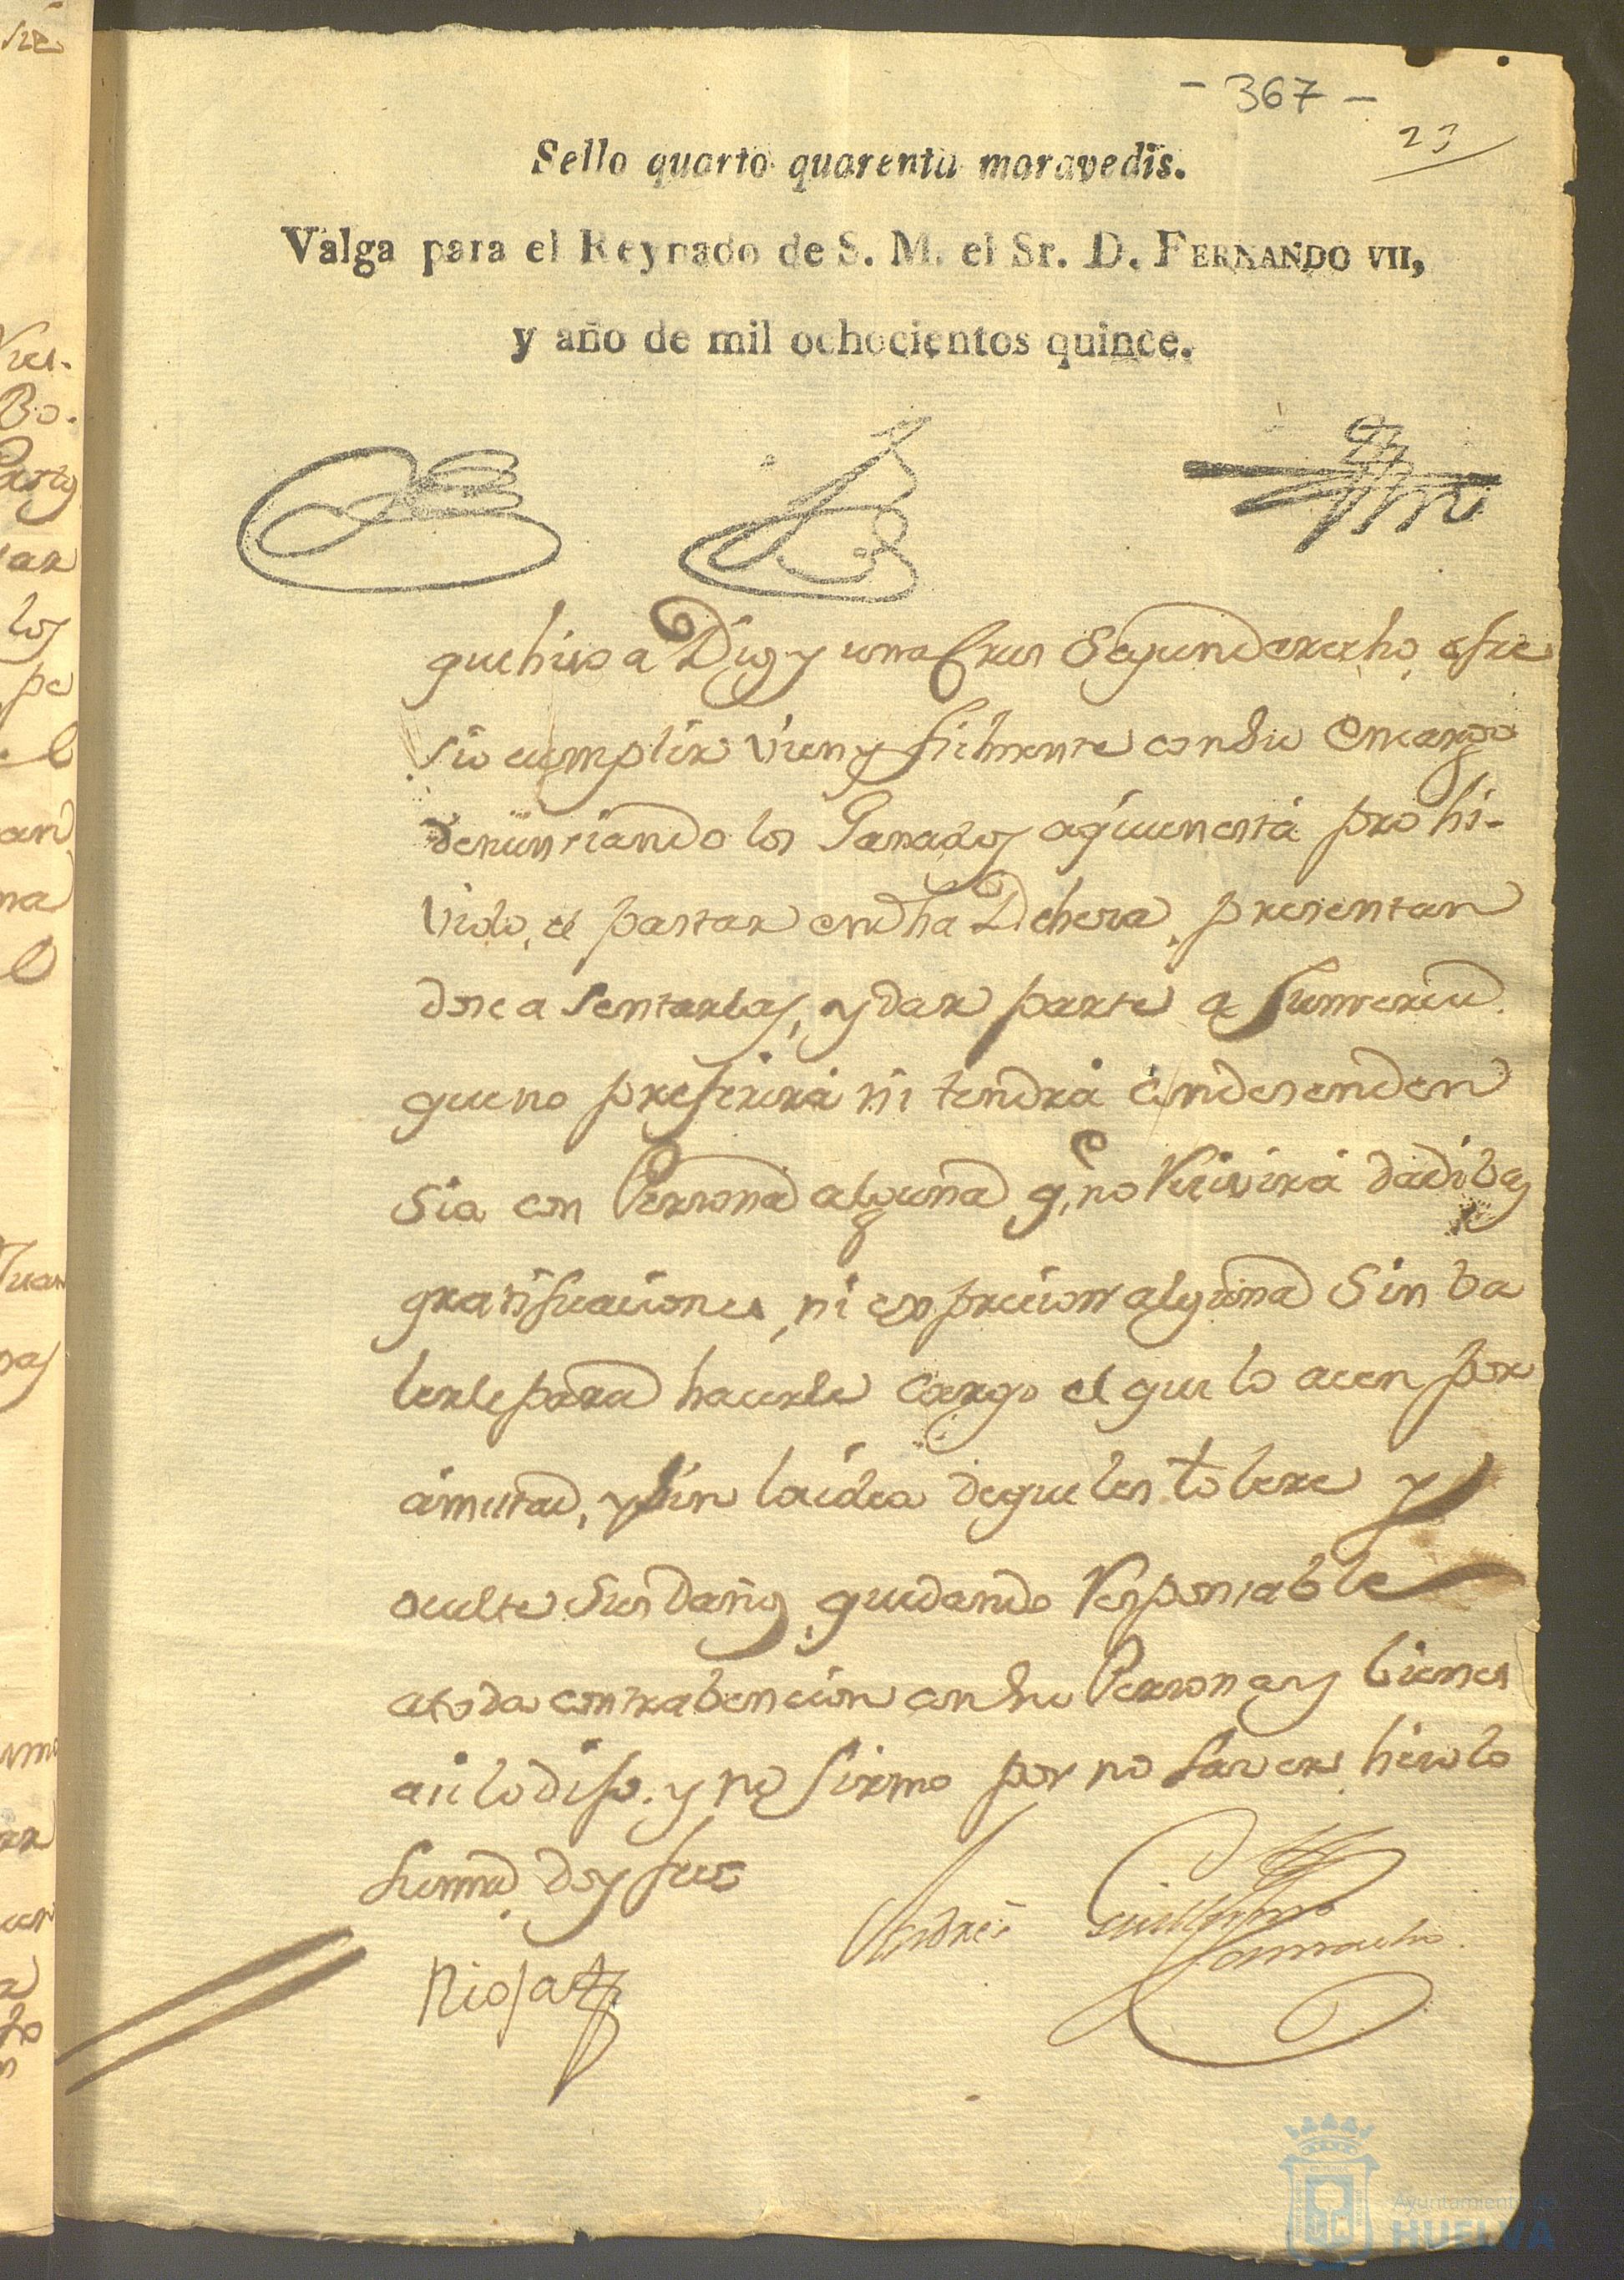 - 367 -
23
Sello quarto quarenta maravedis.
Valga para el Reynado de S. M. el Sr. D. FERNANDO VII,
y año de mil ochocientos quince.
que hiso a Dios y una Crus Segun derecho, ofre
sio cumplir vien y fielmente con su Encargo
denunsiando los Ganados aquienesta prohi-
vido, el pastar en dha Dehesa, presentan
dose a sentarlas, y dar parte a Sumerced.
que no preferirá ni tendrá condesenden
sia con Persona alguna q.e no Recivirá dadibas
gratificaciones, ni expresion alguna Sin ba
lerle para hacerle cargo el que lo acen por
amistad, y sin la idea de que les tolere y
oculte sus daños, quedando Responsable
a toda contrabencion con su Persona y bienes
asi lo dijo. y no firmo por no saver hisolo
Su md doy fee
Andres Guillermo
Camacho.
Rioja
Ayuntamiento de
HUELVA